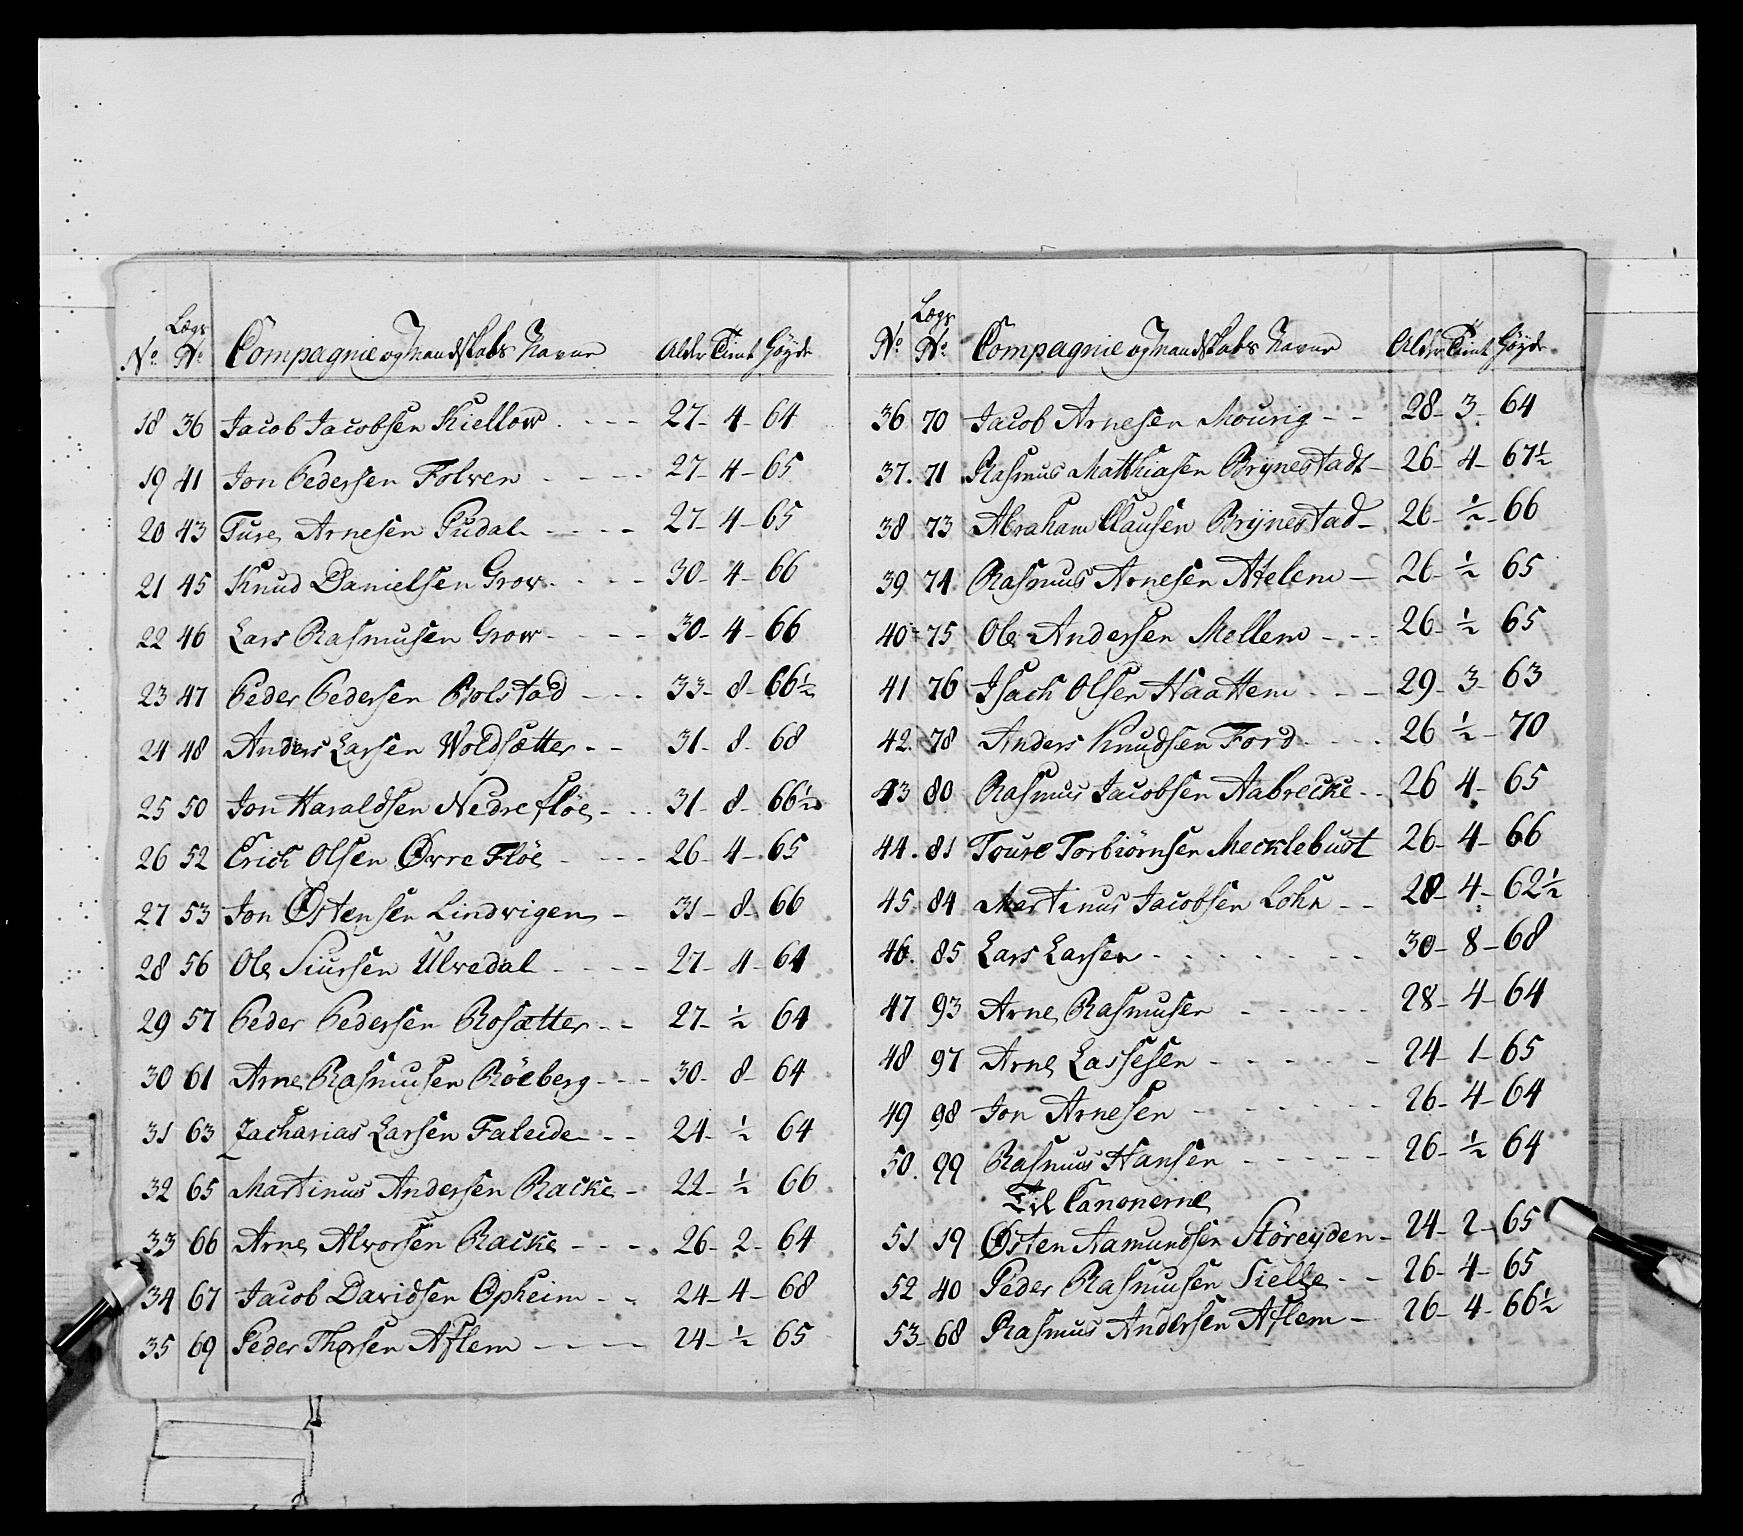 No. Lægs No. Compagnie og Mandskabs Navne Alder Tient Høyde
18 36 Jacob Jacobsen Kiellow . - - - 27 - 4 - 64
19 41 Jon Pedersen Folven - - - - 27 - 4 - 65
20 43 Ture Arnesen Pudal - - - - 27 - 4 - 65
21 45 Knud Danielsen Grow - - - - 30 - 4 - 66
22 46 Lars Rasmusen Grow - - - - 30 - 4 - 66
23 47 Peder Pedersen Bolstad - - - 33 - 8 - 66½
24 48 Anders Larsen Woldsætter - - 31 - 8 - 68
25 50 Jon Haraldsen Nedre flöe - - - 31 - 8 - 66½
26 52 Erich Olsen Øvre Flöe - - - - 26 - 4 - 65
27 53 Jon Østensen Lindvigen - 31 - 8 - 66
28 56 Ole Siursen Ulvedal - - - - 27 - 4 - 64
29 57 Peder Pedersen Rosætter - - 27 - ½ 64
30 61 Arne Rasmusen Röeberg - - - 30 - 8 - 64
31 63 Zacharias Larsen Faleide - - 24 - ½ 64
32 65 Martinus Andersen Racke - 22 - ½ 66
33 66 Arne Alvorsen Racke - - - 26 - 2 - 64
34 67 Jacob Davidsen Opheim - - 24 - 4 - 68
35 69 Peder Thorsen Aflem - - - - 24 - ½ - 65
No. Lægs No. Compagnie og Mandskabs Navne Alder Tient Høyde
36 70 Jacob Arnesen Mourig - - 28 - 3 - 64
37. 71 Rasmus Matthiasen Brÿnestadt - 26 - 4 - 67½
38 73 Abraham Clausen Brÿnestad - 26 - ½ - 66
39 74 Rasmus Arnesen - 26 - ½ 65
40 - 75 Ole Andersen Mellem - - - 26 - ½ 65
41 76 Isach Olsen Haattem - - - 29 - 3 - 63
42. 78 Anders Knudsen Ford - - - - 26 ½ - 70
43 80 Rasmus Jacobsen Aabrecke - - 26 4 - 65
44. 81 Toure Torbiörnsen Mecklebust 26 - 4 - 66
45. 84 Martinus Jacobsen Lohn - - 28 - 4 - 62½
46. 85 Lars Larsen - - - - - - - 30 - 8 - 68
47 93 Arne Rasmusen - - - - - 28 - 4 - 64
48 97 Arne Lassesen - - - - - 24 - 1 - 65
49 98 Jon Arnesen - - - - - - 26 - 4 - 64
50. 99 Rasmus Hansen - - - - - 26 - ½ 64
Til Canonerne
51 19 Østen Aamundsen Störeyden - 24 - 2 - 65
52 40 Peder Rasmusen Sielle - - 26 - 4 - 65
53 - 68 Rasmus Andersen Aflem - 26 - 4 - 66½